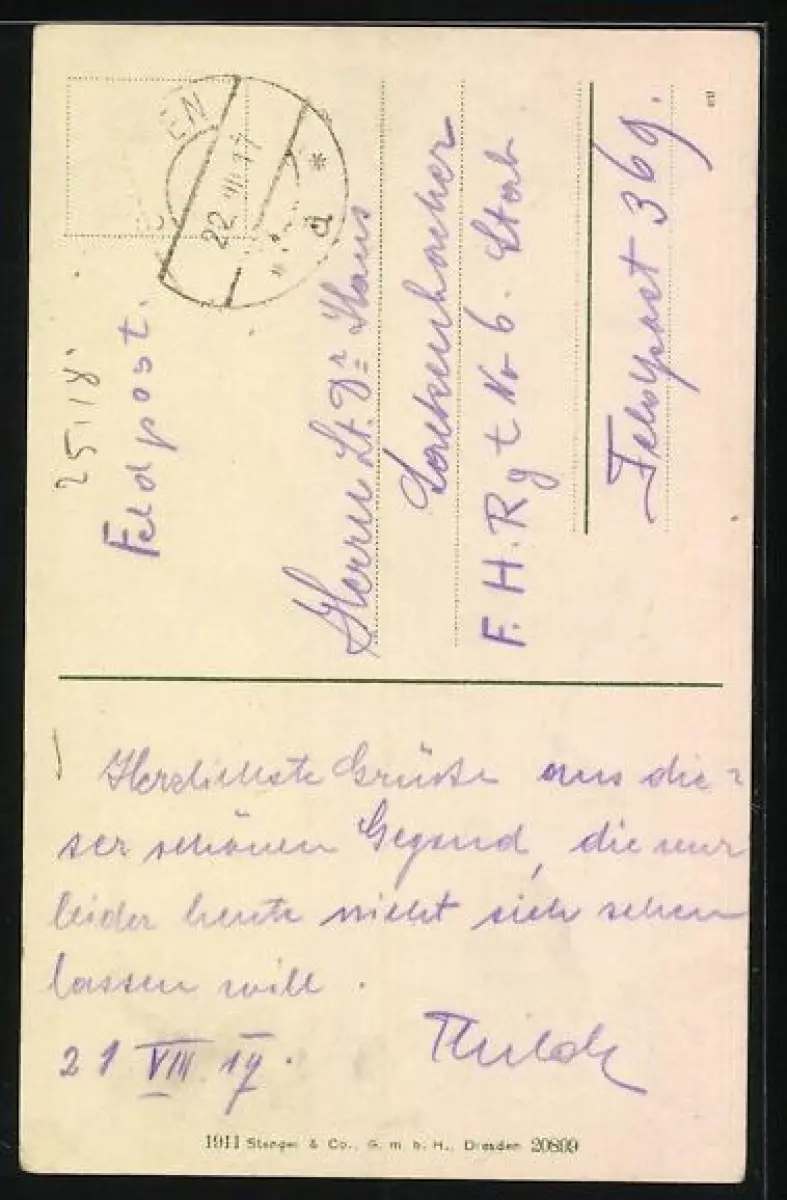 EN
22. VII. 17
a *
25/18.
Feldpost.
Herrn Lt. Dr Hans
F. H. Rgt No 6. Stab
Feldpost 369.
Herzlichste Grüße aus die-
ser schönen Gegend, die nur
leider heute nicht sich sehen
lassen will.
21 VIII 17.
Thilde
1911 Stengel & Co., G. m. b. H., Dresden 20899